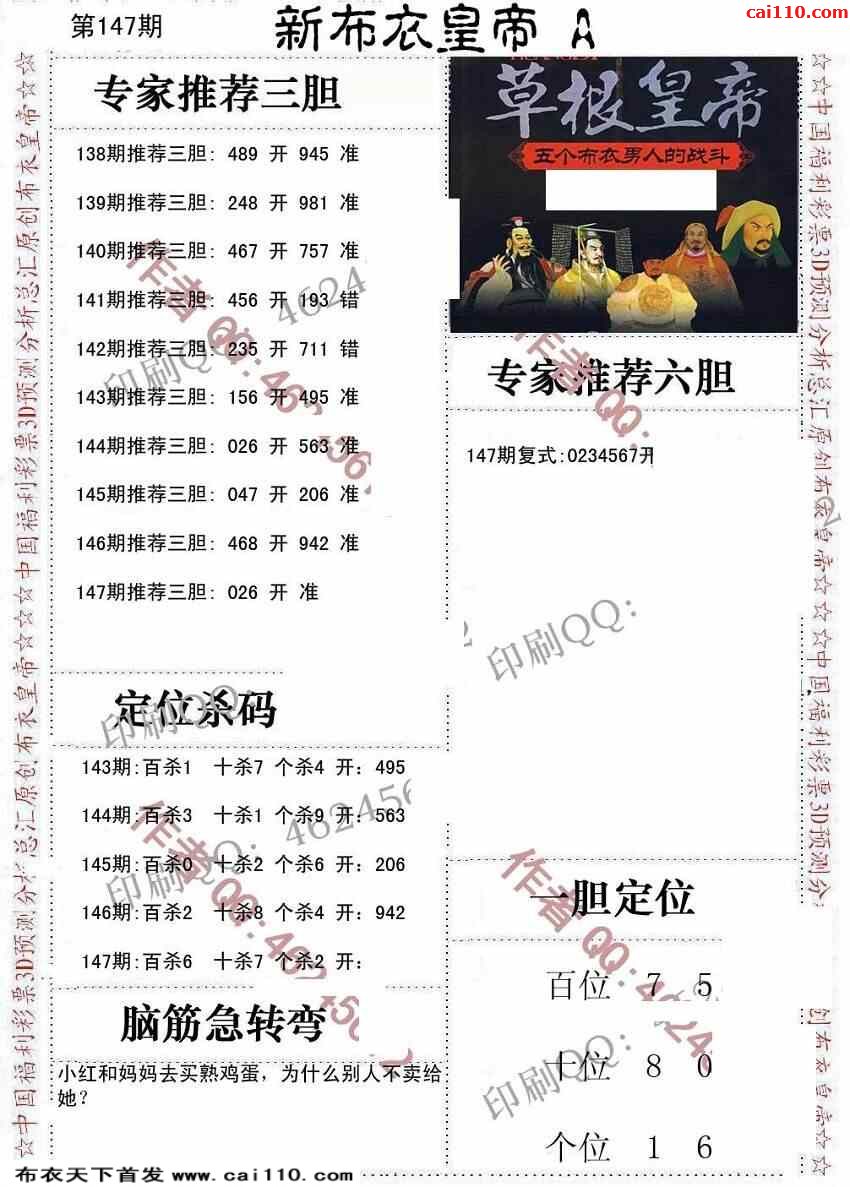 cai110.com
第147期
新布衣皇帝 A
专家推荐三胆
138期推荐三胆: 489 开 945 准
139期推荐三胆: 248 开 981 准
140期推荐三胆: 467 开 757 准
141期推荐三胆: 456 开 193 错
142期推荐三胆: 235 开 711 错
143期推荐三胆: 156 开 495 准
144期推荐三胆: 026 开 563 准
145期推荐三胆: 047 开 206 准
146期推荐三胆: 468 开 942 准
147期推荐三胆: 026 开 准
草根皇帝
五个布衣男人的战斗
专家推荐六胆
147期复式:0234567开
定位杀码
143期:百杀1 十杀7 个杀4 开: 495
144期:百杀3 十杀1 个杀9 开: 563
145期:百杀0 十杀2 个杀6 开: 206
146期:百杀2 十杀8 个杀4 开: 942
147期:百杀6 十杀7 个杀2 开:
脑筋急转弯
小红和妈妈去买熟鸡蛋，为什么别人不卖给
她?
一胆定位
百位 7 5
十位 8 0
个位 1 6
☆中国福利彩票3D预测分析总汇原创布衣皇帝☆☆中国福利彩票3D预测分析总汇原创布衣皇帝☆☆
☆☆中国福利彩票3D预测分析总汇原创布衣皇帝☆☆中国福利彩票3D预测分
创布衣皇帝☆☆
作者QQ:
印刷QQ: 4624
印刷QQ:
印刷QQ:
作者QQ:
印刷QQ: 462456
作者QQ:
印刷QQ:
布衣天下首发 www.cai110.com